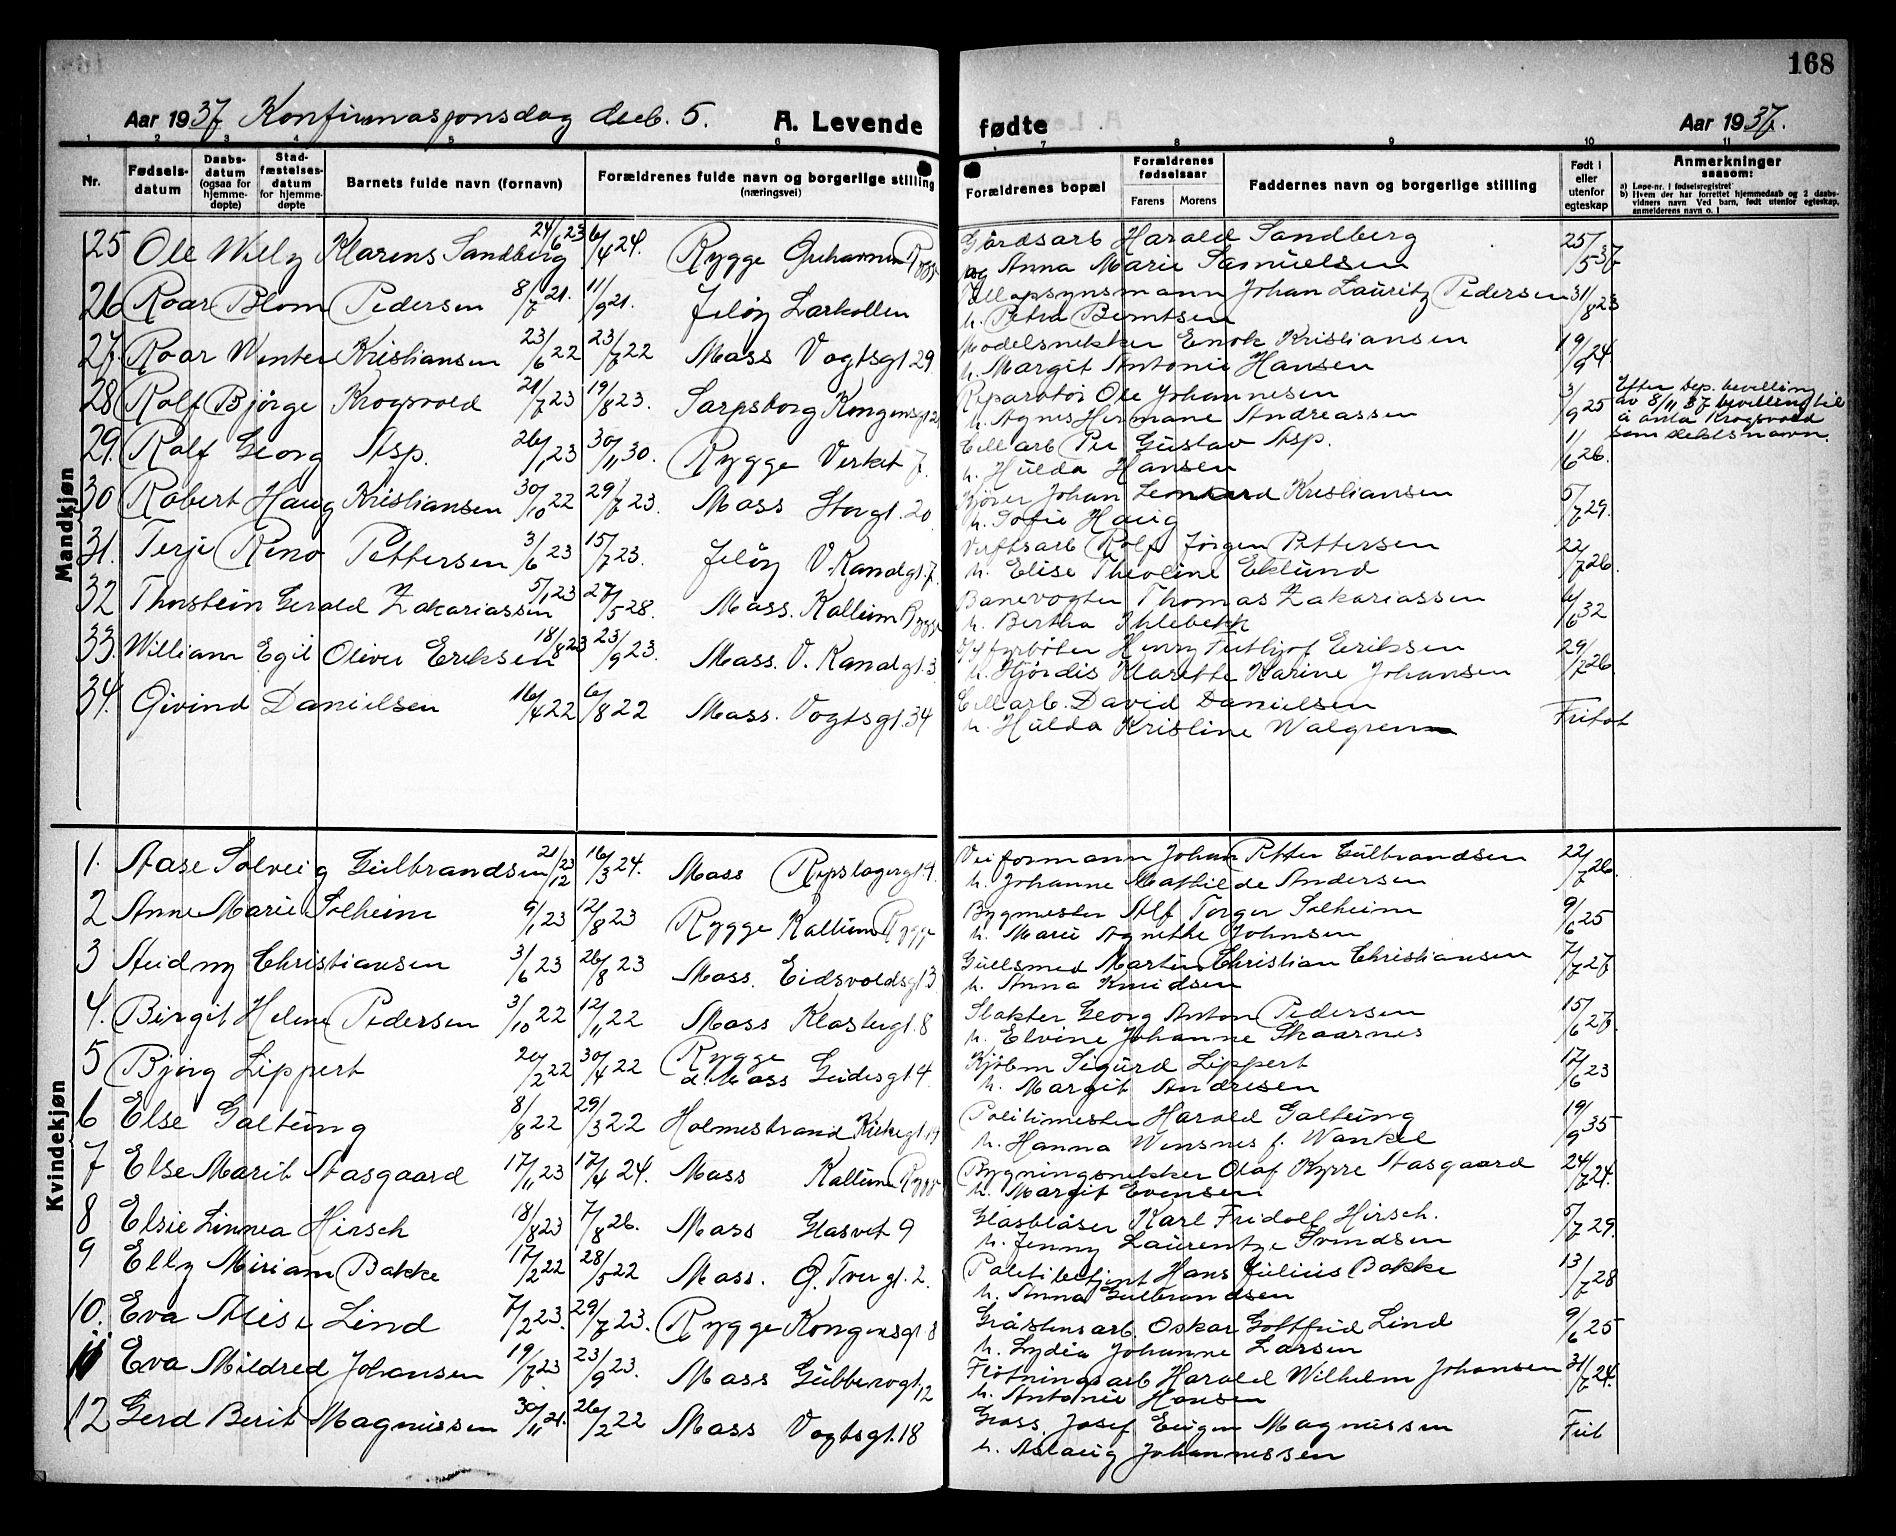 168
Aar 1937 Konfirmasjonsdag decb. 5. A. Levende fødte Aar 1937.
1 2 3 4 5 6 7 8 9 10 11
Nr. Fødsels-datum Daabs-datum (ogsaa for hjemme-døpte) Stad-fæstelses-datum for hjemme-døpte Barnets fulde navn (fornavn) Forældrenes fulde navn og borgerlige stilling (næringsvei) Forældrenes bopæl Forældrenes fødselsaar Farens Morens Faddernes navn og borgerlige stilling Født i eller utenfor egteskap Anmerkninger saasom:
a) Løpe-nr. i fødselsregistret
b) Hvem der har forrettet hjemmedaab og 2 daabs-vidners navn Ved barn, født utenfor egteskap, anmelderens navn o. l
Mandkjøn
25 Ole Willy Klarens Sandberg 24/6 23 6/4 24. Rygge Rygge Gårdsarb Harald Sandberg 25/5 37
og Anna Marie Samuelsen
26 Roar Blom Pedersen 8/7 21. 11/9 21. Jeløy Larkollen Tollopsynsmann Johan Lauritz Pedersen 31/8 23
h. Petra Berntsen
27. Roar Wenter Kristiansen 23/6 22 23/7 22 Moss Vogtsgt 29 Modelsnekker Enok Kristiansen 19/9 24
h. Margit Antonie Hansen
28 Rolf Bjørge Krogsvold 21/7 23 19/8 23. Sarpsborg Kongensgt 2 Reparatør Ole Johannesen 3/9 25 Efter dep. bevilling
av 8/11 37 bevilling til
h. Agnes Hermane Andreassen å anta Krogsvold
som slektsnavn.
29. Rolf Georg Asp. 26/1 23 30/11 30. Rygge Verket 7. Cellarb Per Gustav Asp. 1/6 26.
h. Hulda Hansen
30 Robert Haug Kristiansen 30/10 22 29/7 23. Moss Storgt. 20 Kjører Johan Leonard Kristiansen 5/7 29.
h. Sofie Haug
31. Terje Reno Pettersen 3/6 23 15/7 23. Jeløy V. Kanalgt. 7. Verftsarb Rolf Jørgen Pettersen 22/7 26.
h. Elise Theoline Eklund
32 Thorstein Gerald Zakariassen 5/1 23 27/5 28. Moss. Kallum Rygge Banevogter Thomas Zakariassen 6/6 32
h. Bertha Ihlebekk
33. William Egil Oliver Eriksen 18/8 23 23/9 23. Moss. V. Kanalgt. 3 fyrbøter Henry Fritjof Eriksen 29/7 26.
h. Hjørdis Klarette Karine Johansen
34. Øivind Danielsen 16/4 22 6/8 22 Moss. Vogtsgt. 34 Cellarb. David Danielsen Fritat
h. Hulda Kristine Walgren
Kvindekjøn
1. Aase Solveig Gulbrandsen 21/12 23 16/3 24. Moss Repslagergt 4. Veiformann Johan Petter Gulbrandsen 22/7 26.
h. Johanne Mathilde Andersen
2 Anne Marie Solheim 9/1 23 12/8 23 Rygge Kallum Rygge Bygmester Alf Torger Solheim 9/6 25
h. Marie Agnethe Johnsen
3 Aud ny Christiansen 3/6 23 26/8 23 Moss. Eidsvoldsgt 3 Gullsmed Martin Christian Christiansen 7/7 27.
h. Anna Knudsen
4. Birgit Helene Pedersen 3/10 22 12/11 22 Moss Klostergt. 8 Slakter Georg Anton Pedersen 15/6 27.
h. Elvine Johanne Skaarnes
5 Bjørg Lippert 20/2 22 30/4 22 Rygge
Moss Gudesgt 4. Kjøbm Sigurd Lippert 17/6 23
h. Margit Andresen
6 Else Galtung 8/8 22 29/3 22 Holmestrand Kirkegt. 14 Politimester Harald Galtung 19/9 35
h. Hanna Wensnes f. Wankel
7 Else Marit Aasgaard 17/11 23 17/4 24. Moss Kallum Rygge Bygningsnekker Olaf Kyrre Aasgaard 24/7 24.
h. Margit Evensen
8 Elsie Linnea Hirsch 18/8 23 7/8 26. Moss Glasvet 9 Glasblåser Karl Fridolf Hirsch. 5/7 29.
h. Jenny Laurentze Svindsen
9 Elly Miriam Bakke 17/2 22 28/5 22 Moss. Ø. Tvergt. 2. Politibetjent Hans Julius Bakke 13/7 28
h. Anna Gulbrandsen
10. Eva Alise Lind 7/2 23. 29/7 23. Rygge Kongensgt. 8 Gråstensarb. Oskar Gottfrid Lind 9/6 25
h. Lydia Johanne Larsen
11 Eva Mildred Johansen 19/7 23 23/9 23. Moss Gubberogt. 12 Fløtningsarb Harald Wilhelm Johansen 31/7 24.
h. Antonie Hansen
12 Gerd Berit Magnussen 30/11 21. 26/2 22 Moss Vogtsgt. 18 Gross. Josef Eugen Magnussen Frit
h. Aslaug Johannessen